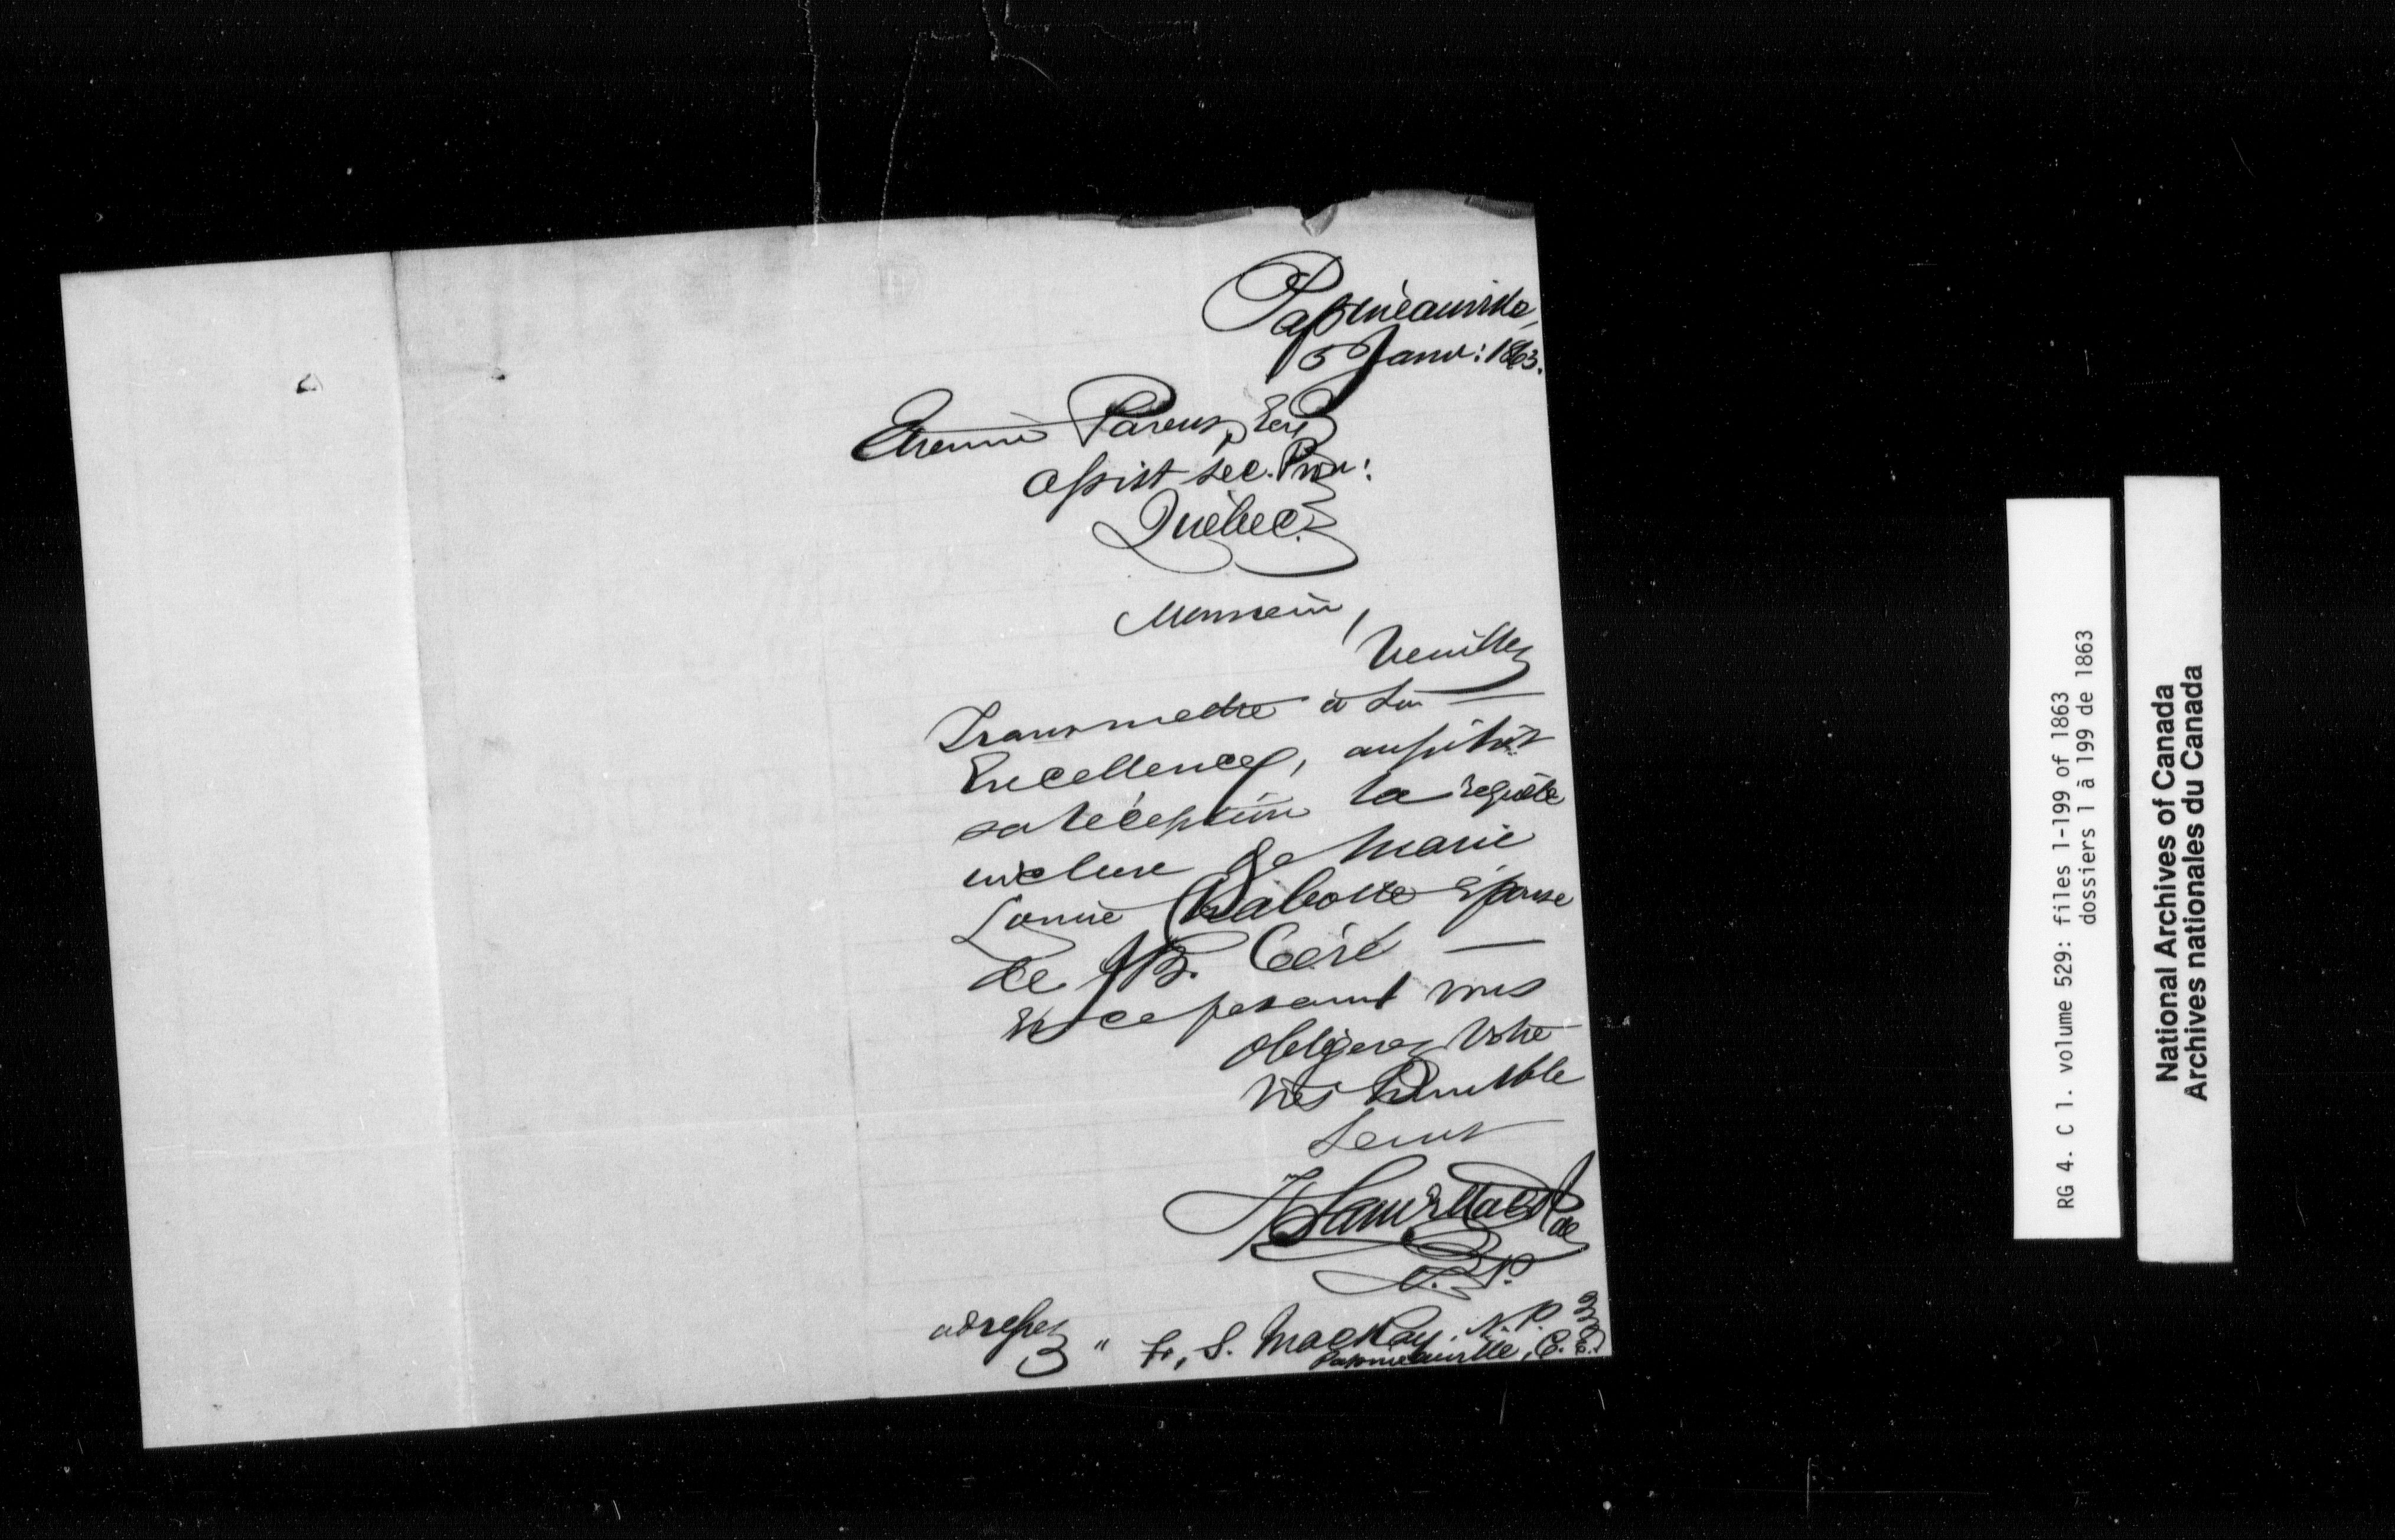 Papineauville,
5 Janv: 1863.
Etienne Parent, Ecr
Assist Sec. Prov:
Québec.
Monsieur,
Veuillez
Transmettre à Son
Excellence, aussitôt
sa réception la requête
incluse de Marie
Louise Chabotte Epouse
de JB. Céré
En ce faisant vous
obligerez Votre
très humble
Servt
N. P.
adressez " Fr. S. MacKay. N. P.
Papineauville, C. E.
RG 4. C 1. volume 529: files 1-199 of 1863
dossiers 1 à 199 de 1863
National Archives of Canada
Archives nationales du Canada